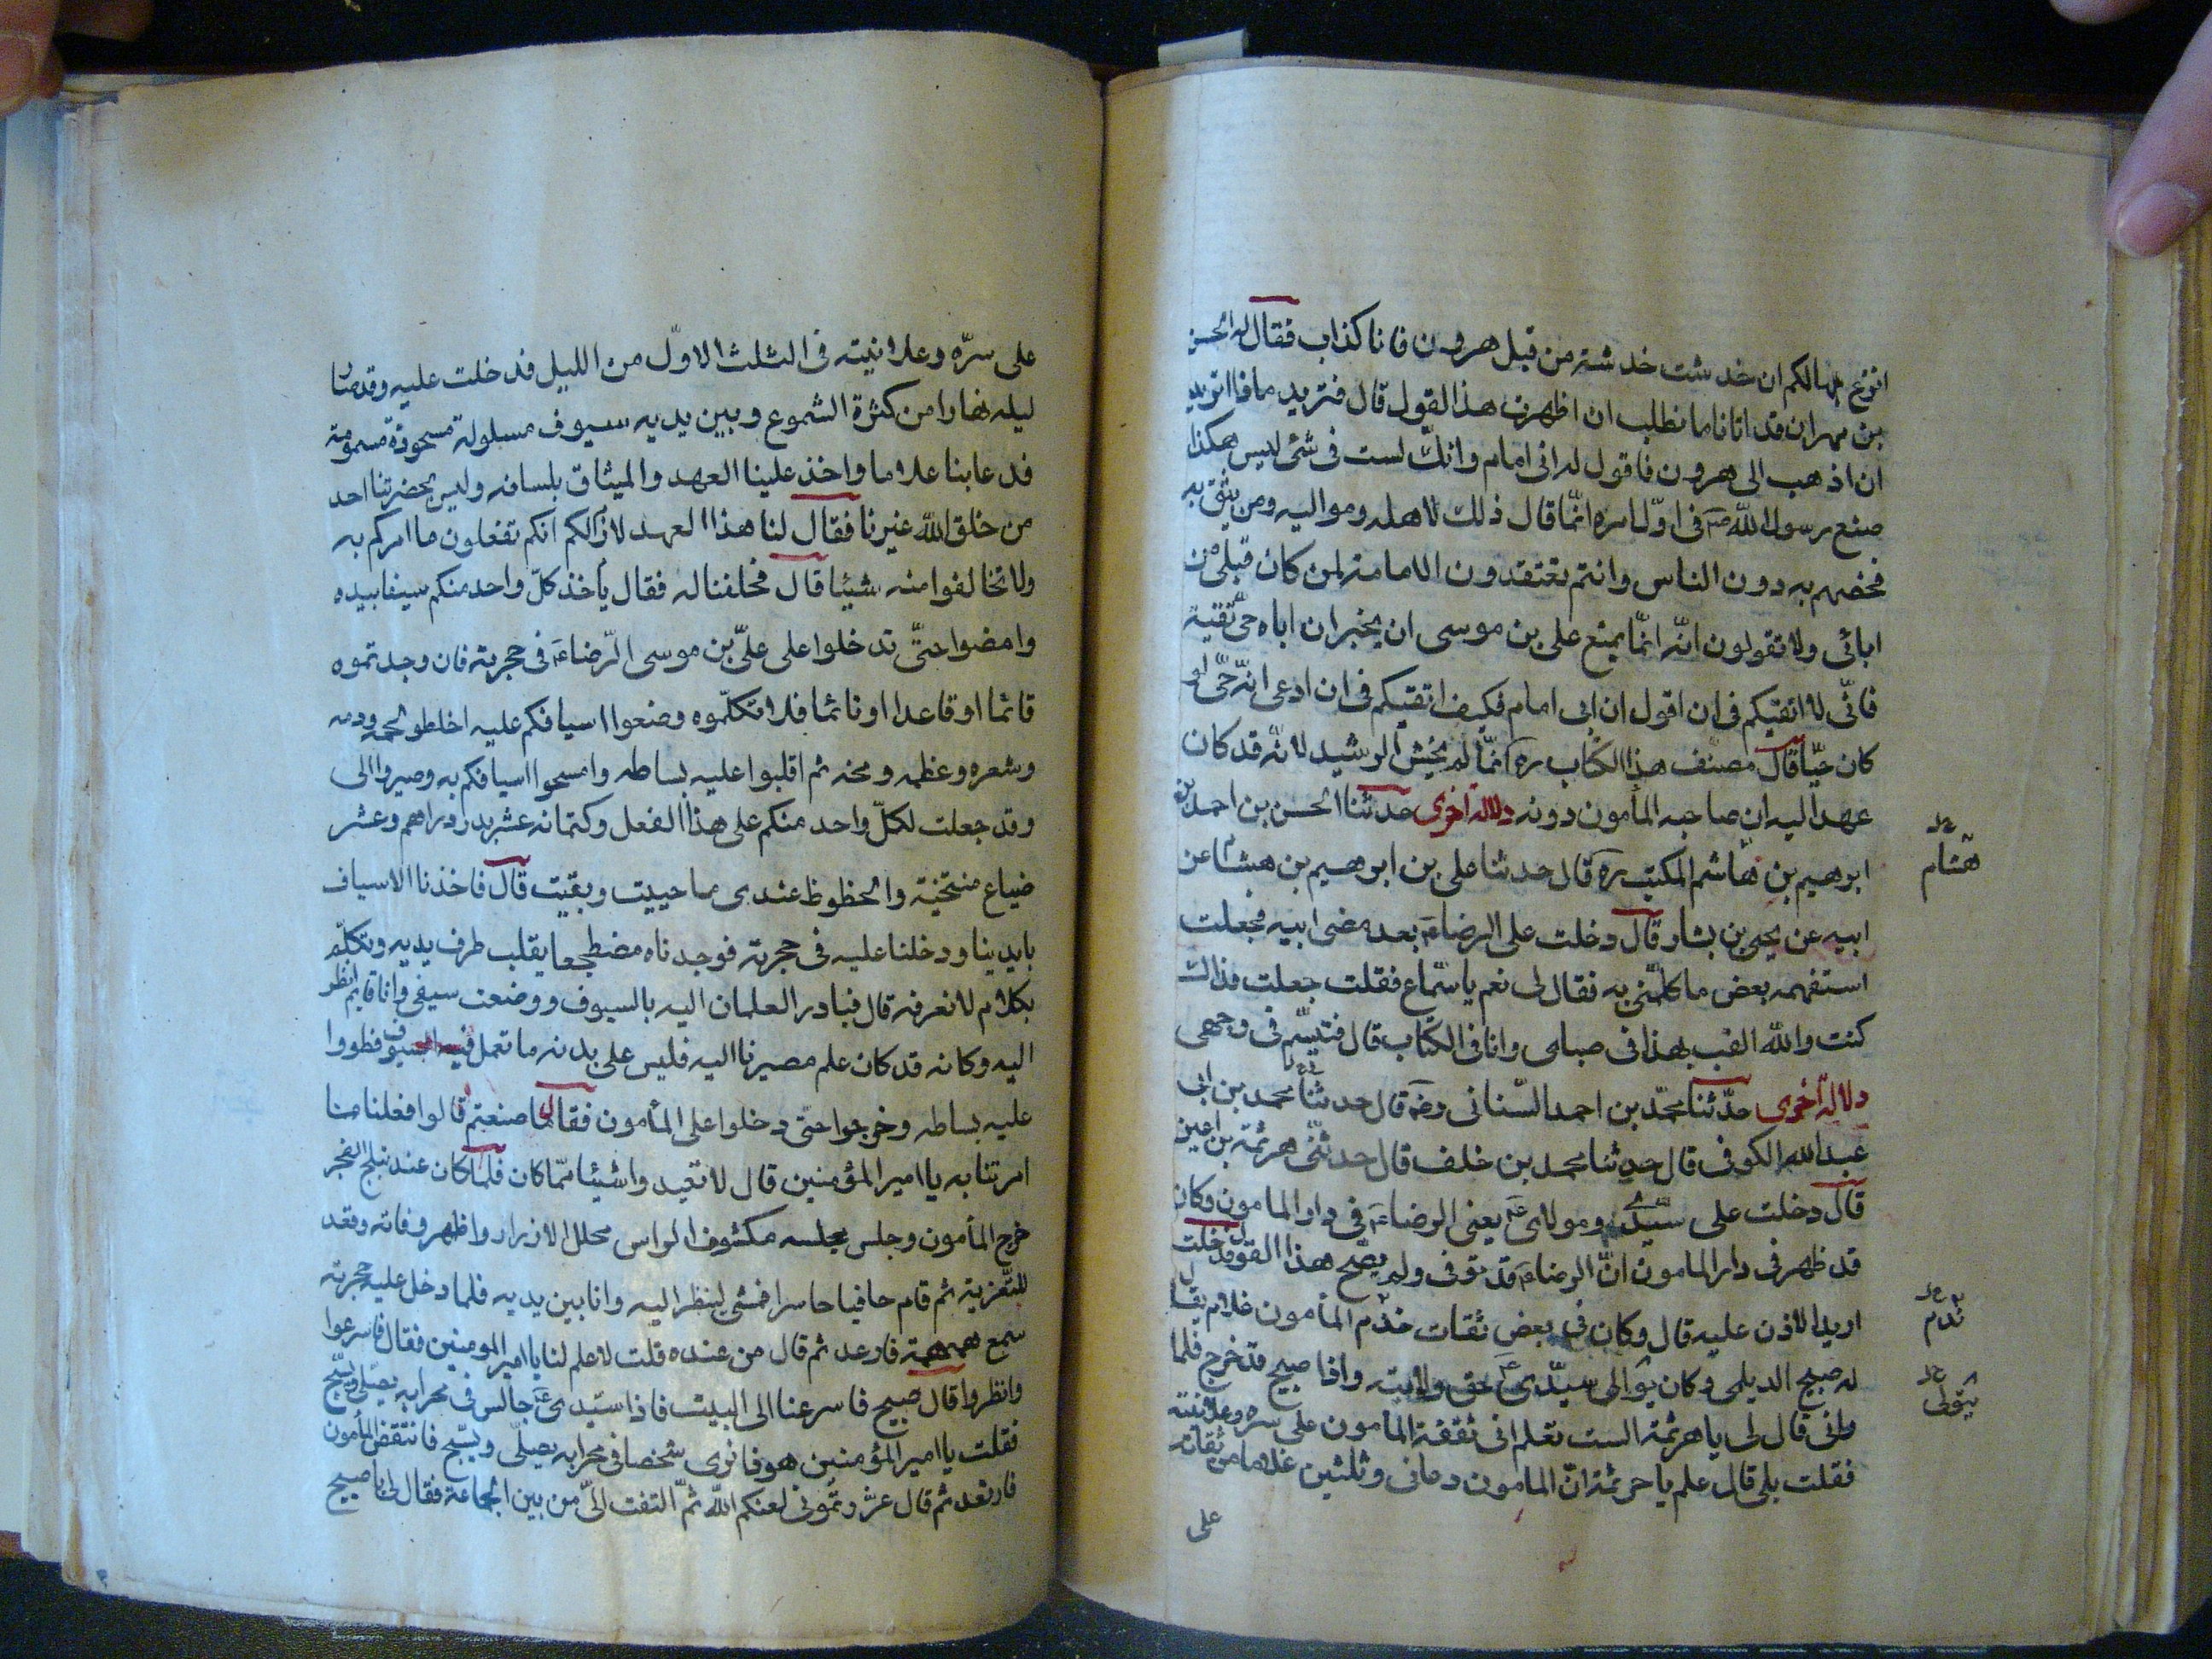 افزع بها لكم ان خدشت خدشة من قبل هرون فانا كذاب فقال له الحسن
بن مهران قد اتانا ما نطلب ان اظهرت هذا القول قال فتريد ماذا اتريد
ان اذهب الى هرون فاقول له انى امام وانك لست فى شئ ليس هكذا
صنع رسول الله ص فى اوّل امره انّما قال ذلك لاهله ومواليه ومن يثق به
فخصهم به دون الناس وانتم تعتقدون الامامة لمن كان قبلى من
ابائى ولا تقولون انّه انمّا يمنع على بن موسى ان يخبر ان اباه حىّ تقية
فانّى لا اتقيكم فى ان اقول ان ابى امام فكيف اتقيكم فى ان ادعى انه حىّ لو
كان حيّا قال مصنّف هذا الكتاب ره انّما لم يخش الرشيد لانّه قد كان
عهد اليه ان صاحبه المأمون دونه دلالة اخرى حدثنا الحسن بن احمد بن
ابرهيم بن هاشم المكتب ره قال حدثنا على بن ابرهيم بن هشام عن
ابيه عن يحيى بن بشار قال دخلت على الرضا ع بعد مضى ابيه فجعلت
استفهمه بعض ما كلمّنى به فقال لى نعم يا سمّاع فقلت جعلت فداك
كنت والله القب بهذا فى صباى وانا فى الكتّاب قال فتبسّم فى وجهى
دلالة اخرى حدّثنا محمّد بن احمد السّنانى رضه قال حدثنا محمد بن ابى
عبد الله الكوفى قال حدثنا محمد بن خلف قال حدثنّى هرثمة بن اعين
قال دخلت على سيّدى ومولاى ع يعنى الرضا ع فى دار المامون وكان
قد ظهر فى دار المامون انّ الرضا ع قد توفى ولم يصّح هذا القول فدخلت
اريد الاذن عليه قال وكان فى بعض ثقات خدم المأمون غلام يقال
له صبيح الديلمى وكان يوالى سيّدى ع حق ولايته واذا صبيح قد خرج فلما
رانى قال لى يا هرثمة الست تعلم انى ثقة المأمون على سره وعلانيته
فقلت بلى قال علم يا هرثمة انّ المامون دعانى وثلثين غلاما من ثقاته
على
هشام
خدم
يتولى
على سرّه وعلانيته فى الثلث الاوّل من الليل فدخلت عليه وقد صار
ليله نهارا من كثرة الشموع وبين يديه سيوف مسلولة مسحوذة مسمومة
فدعا بنا غلاما واخذ علينا العهد والميثاق بلسانه وليس بحضرتنا احد
من خلق الله غيرنا فقال لنا هذا العهد لازم لكم انكم تفعلون ما امركم به
ولا تخالفوا منه شيئا قال فحلفنا له فقال يأخذ كلّ واحد منكم سيفا بيده
وامضوا حتّى تدخلوا على علىّ بن موسى الرّضا ع فى حجرته فان وجدتموه
قائما او قاعدا او نائما فلا تكلّموه وضعوا اسيافكم عليه اخلطوا لحمه ودمه
وشعره وعظمه ومخه ثم اقلبوا عليه بساطه وامسحوا اسيافكم به وصيروا الى
وقد جعلت لكلّ واحد منكم على هذا الفعل وكتمانه عشر بدر دراهم وعشر
ضياع منتخبة والحظوظ عندى ما حييت وبقيت قال فاخذنا الاسياف
بايدينا ودخلنا عليه فى حجرته فوجدناه مضطجعا يقلب طرف يديه ويتكلّم
بكلام لا نعرفه قال فبادر الغلمان اليه بالسيوف ووضعت سيفى وانا قايم انظر
اليه وكانه قد كان علم مصيرنا اليه فليس على بدنه ما تعمل فيه السيوف فطووا
عليه بساطه وخرجوا حتى دخلوا على المأمون فقال ما صنعتم قالوا فعلنا ما
امرتنا به يا امير المؤمنين قال لا تعيدوا شيئا ممّا كان فلمّا كان عند تبلج الفجر
خرج المأمون وجلس مجلسه مكشوف الراس محلل الازرار واظهر وفاته وقعد
للتّعزية ثم قام حافيا حاسرا فمشى لينظر اليه وانا بين يديه فلما دخل عليه حجرته
سمع همهمة فارعد ثم قال من عنده قلت لا علم لنا يا امير المومنين فقال فاسرعوا
وانظروا قال صبيح فاسرعنا الى البيت فاذا سيّدى ع جالس فى محرابه يصلى ويسبّح
فقلت يا امير المؤمنين هو ذا نرى شخصا فى محرابه يصلّى ويسبّح فانتفض المأمون
فارتعد ثم قال غرّرتمونى لعنكم الله ثمّ التفت الىّ من بين الجماعة فقال لى يا صبيح